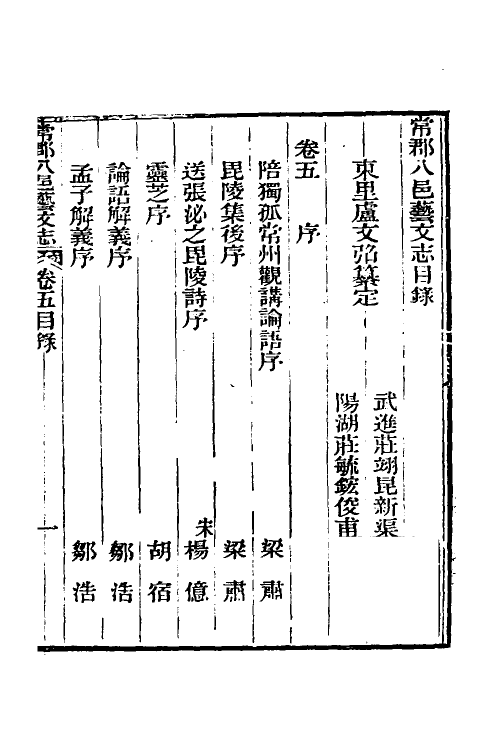 常郡八邑藝文志目錄
東里盧文弨纂定
武進莊翊昆新渠
陽湖莊毓鋐俊甫
卷五　序
陪獨孤常州觀講論語序　梁肅
毘陵集後序　梁肅
送張泌之毘陵詩序　宋楊億
靈芝序　胡宿
論語解義序　鄒浩
孟子解義序　鄒浩
常郡八邑藝文志　卷五目錄　一